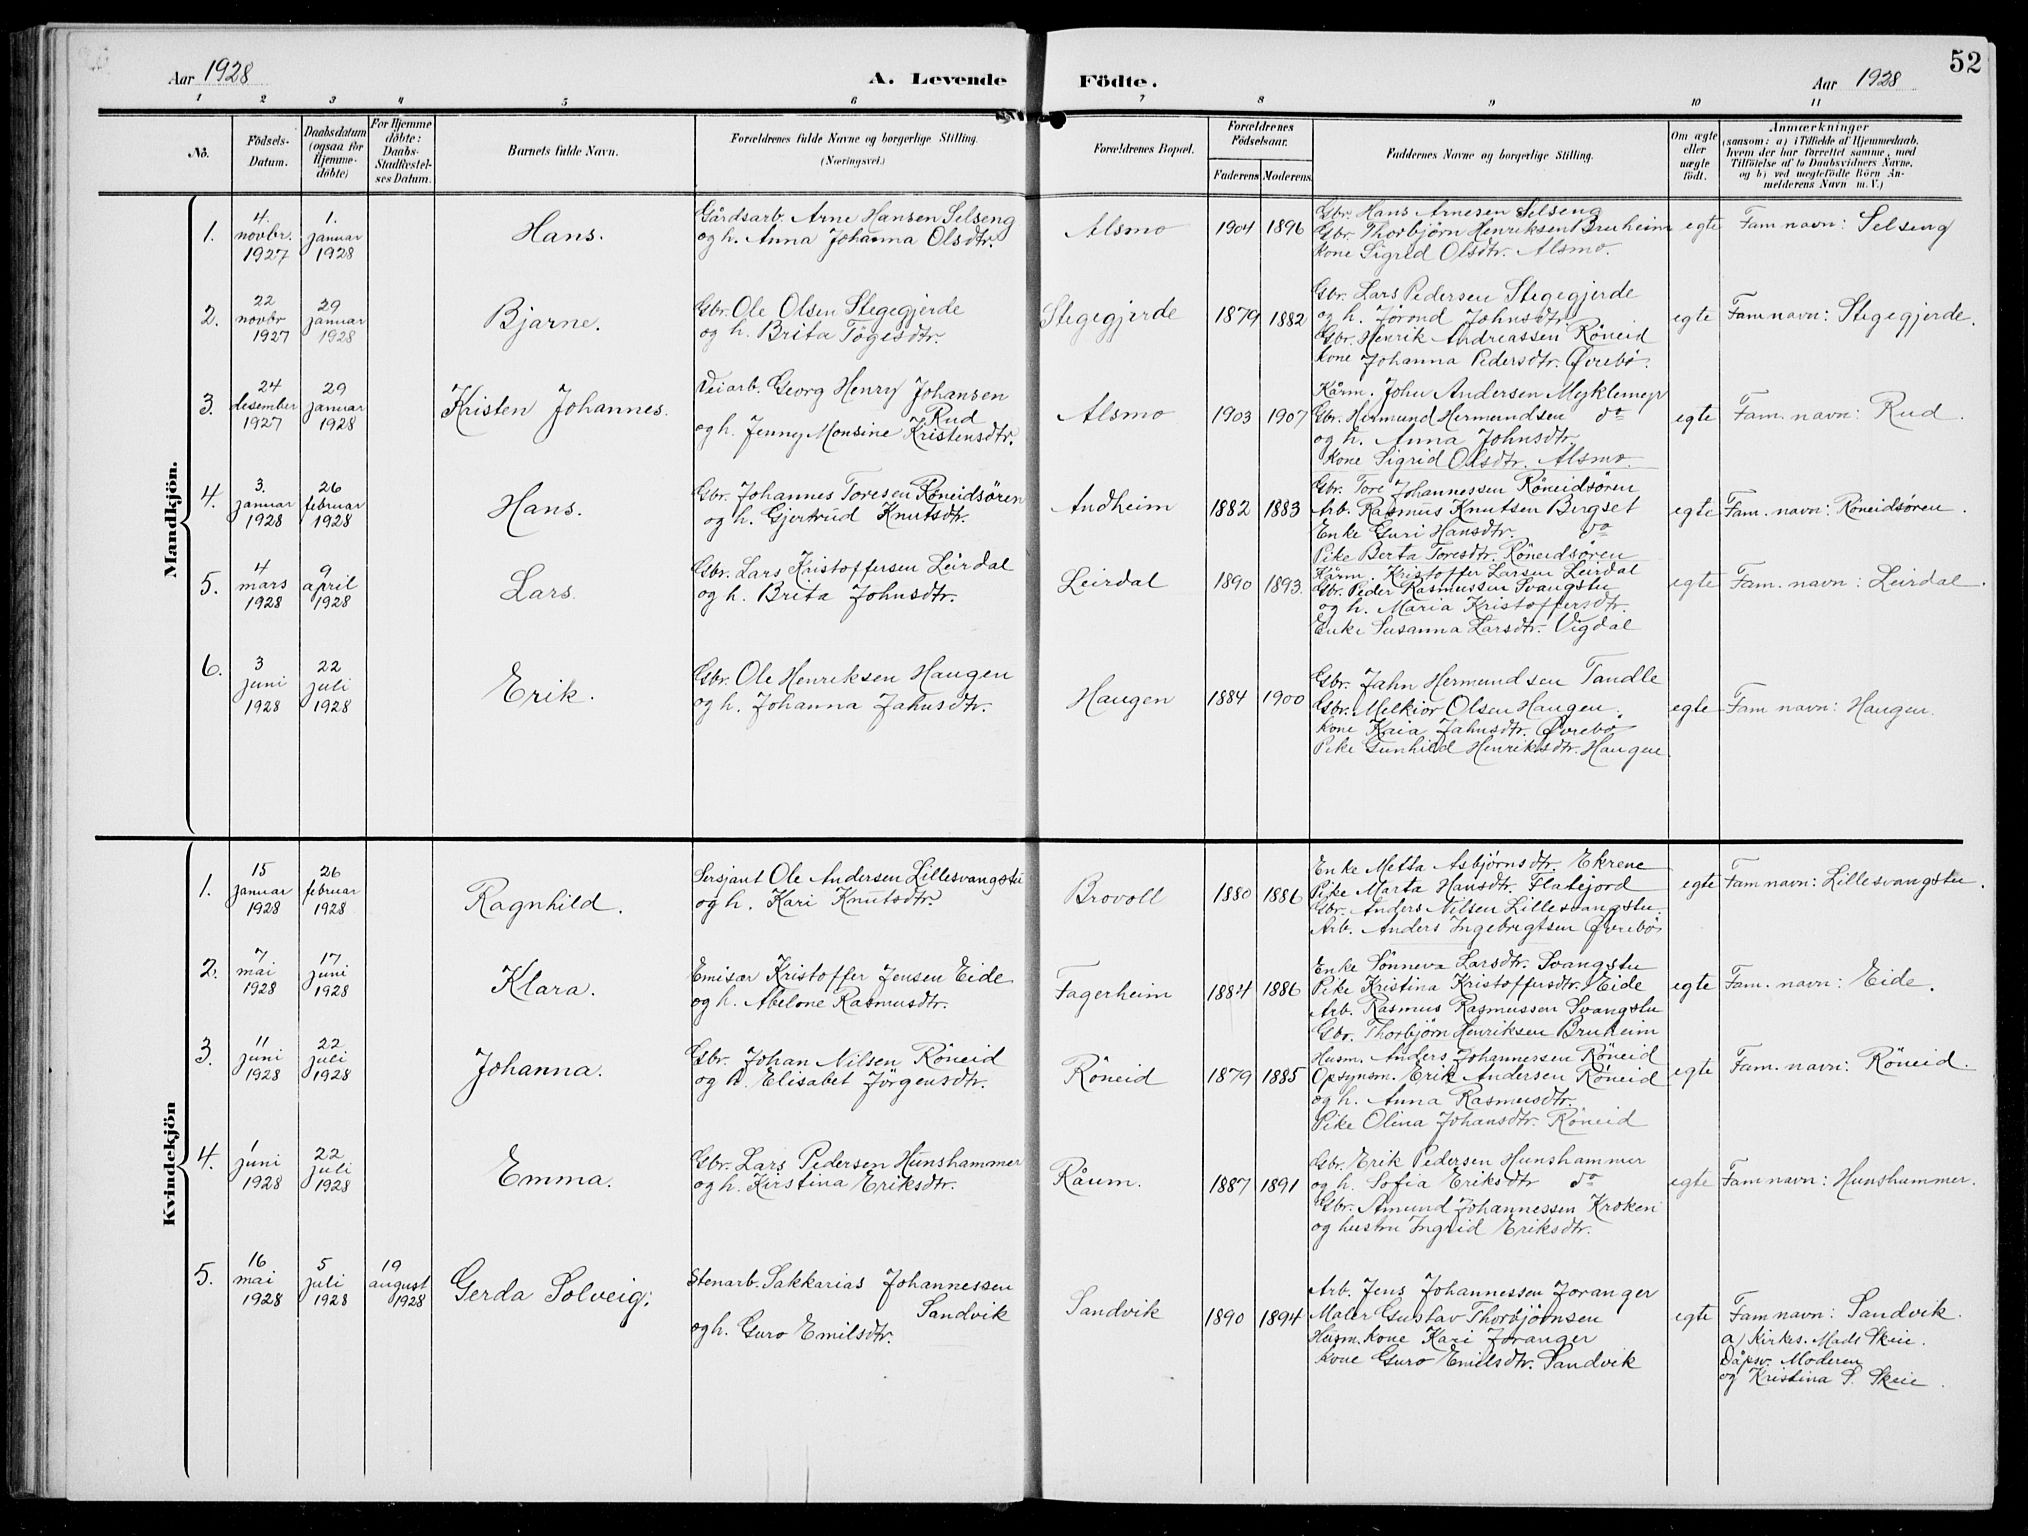 52
Aar 1928 A. Levende Födte. Aar 1928
1 2 3 4 5 6 7 8 9 10 11
No. Födsels-Datum. Daabsdatum (ogsaa for Hjemme-döbte) For Hjemme döbte: Daabs-Stadfæstel-ses Datum. Barnets fulde Navn. Forældrenes fulde Navne og borgerlige Stilling. (Næringsvei.) Forældrenes Bopæl. Forældrenes Födselsaar. Faderens Moderens Faddernes Navne og borgerlige Stilling. Om ægte eller uægte födt. Anmærkninger (saasom: a) i Tilfælde af Hjemmedaab, hvem der har forrettet samme, med Tilföielse af to Daabsvidners Navne, og b) ved uægtefödte Börn An-melderens Navn m. V.)
Mandkjön.
1. 4. novbr. 1927 1. januar 1928 Hans. Gårdsarb. Arne Hansen Selseng
og h. Anna Johanna Olsdtr. Alsmo 1904 1896 Gbr. Hans Arnesen Selseng
Gbr. Thorbjörn Henriksen Bruheim
Kone Sigrid Olsdtr. Alsmo. egte Fam navn: Selseng
2. 22 novbr 1927 29 januar 1928 Bjarne. Gbr. Ole Olsen Stegegjerde
og h. Brita Tögesdtr. Stegegjerde 1879 1882 Gbr. Lars Pedersen Stegegjerde
og h. Jorond Johnsdtr.
Gbr. Henrik Andreassen Röneid
Kone Johanna Pedersdtr. Øvrebö. egte Fam navn: Stegegjerde.
3. 24 desember 1927 29 januar 1928 Kristen Johannes. Veiarb. Georg Henry Johansen
Rud
og h. Jenny Monsine Kristensdtr. Alsmo 1903 1907 Kårm. John Andersen Myklemyr
Gbr. Hermund Hermundsen do
og h. Anna Johnsdtr.
Kone Sigrid Olsdtr. Alsmo. egte Fam. navn: Rud.
4. 3. januar 1928 26 februar 1928 Hans. Gbr. Johannes Toresen Röneidsören
og h. Gjertrud Knutsdtr. Andheim 1882 1883 Gbr. Tore Johannessen Röneidsören
Arb. Rasmus Knutsen Bergset
Enke Guri Hansdtr. do
Pike Berta Toresdtr. Röneidsören egte Fam. navn: Röneidsören.
5. 4 mars 1928 9 april 1928 Lars. Gbr. Lars Kristoffersen Leirdal
og h. Brita Johnsdtr. Leirdal 1890 1893. Kårm. Kristoffer Larsen Leirdal
Gbr. Peder Rasmussen Svangstu
og h. Maria Kristoffersdtr.
Enke Susanna Larsdtr. Vigdal egte Fam. navn: Leirdal.
6. 3 juni 1928 22 juli 1928 Erik. Gbr. Ole Henriksen Haugen
og h. Johanna Jahnsdtr. Haugen 1884 1900 Gbr. Jahn Hermundsen Tandle
Gbr. Melkior Olsen Haugen.
Kone Kaia Jahnsdtr. Øvrebö
Pike Gunhild Henriksdtr. Haugen egte Fam navn: Haugen.
Kvindekjön
1. 15 januar 1928 26 februar 1928 Ragnhild. Sersjant Ole Andersen Lillesvangstu
og h. Kari Knutsdtr. Brovoll 1880 1886 Enke Metta Asbjörnsdtr. Ekrene
Pike Marta Hansdtr. Flatejord
Gbr. Anders Nilsen Lillesvangstu.
Arb. Anders Ingebrigtsen Øvrebö egte Fam navn: Lillesvangstu.
2. 7 mai 1928 17 juni 1928 Klara. Emisær Kristoffer Jensen Eide
og h. Abelone Rasmusdtr. Fagerheim 1884 1886 Enke Sönneva Larsdtr. Svangstu
Pike Kristina Kristoffersdtr. Eide
Arb. Rasmus Rasmussen Svangstu
Gbr. Thorbjörn Henriksen Bruheim egte Fam. navn: Eide.
3. 11 juni 1928 22 juli 1928 Johanna. Gbr. Johan Nilsen Röneid
og h. Elisabet Jörgensdtr. Röneid 1879 1885 Husm. Anders Johannersen Röneid
Opsynsm. Erik Andersen Röneid
og h. Anna Rasmusdtr.
Pike Olina Johansdtr. Röneid egte Fam. navn: Röneid.
4. 1 juni 1928 22 juli 1928 Emma. Gbr. Lars Pedersen Hunshammer
og h. Kirstina Eriksdtr. Råum. 1887 1891 Gbr. Erik Pedersen Hunshammer
og h. Sofia Eriksdtr do
Gbr. Amund Johannessen Kroken
og hustru Ingrid Eriksdtr. egte Fam navn: Hunshammer.
5. 16 mai 1928 5 juli 1928 19 august 1928 Gerda Solveig. Stenarb. Sakkarias Johannessen
Sandvik
og h. Guro Emilsdtr. Sandvik 1890 1894 Arb. Jens Johannessen Joranger
Maler Gustav Thorbjörnsen
Husm. Kone Kari Joranger
Kone Guro Emilsdtr. Sandvik egte Fam navn: Sandvik.
a) Kirkes. Mads Skeie.
Dåpsv. Moderen
og Kristina S. Skeie.